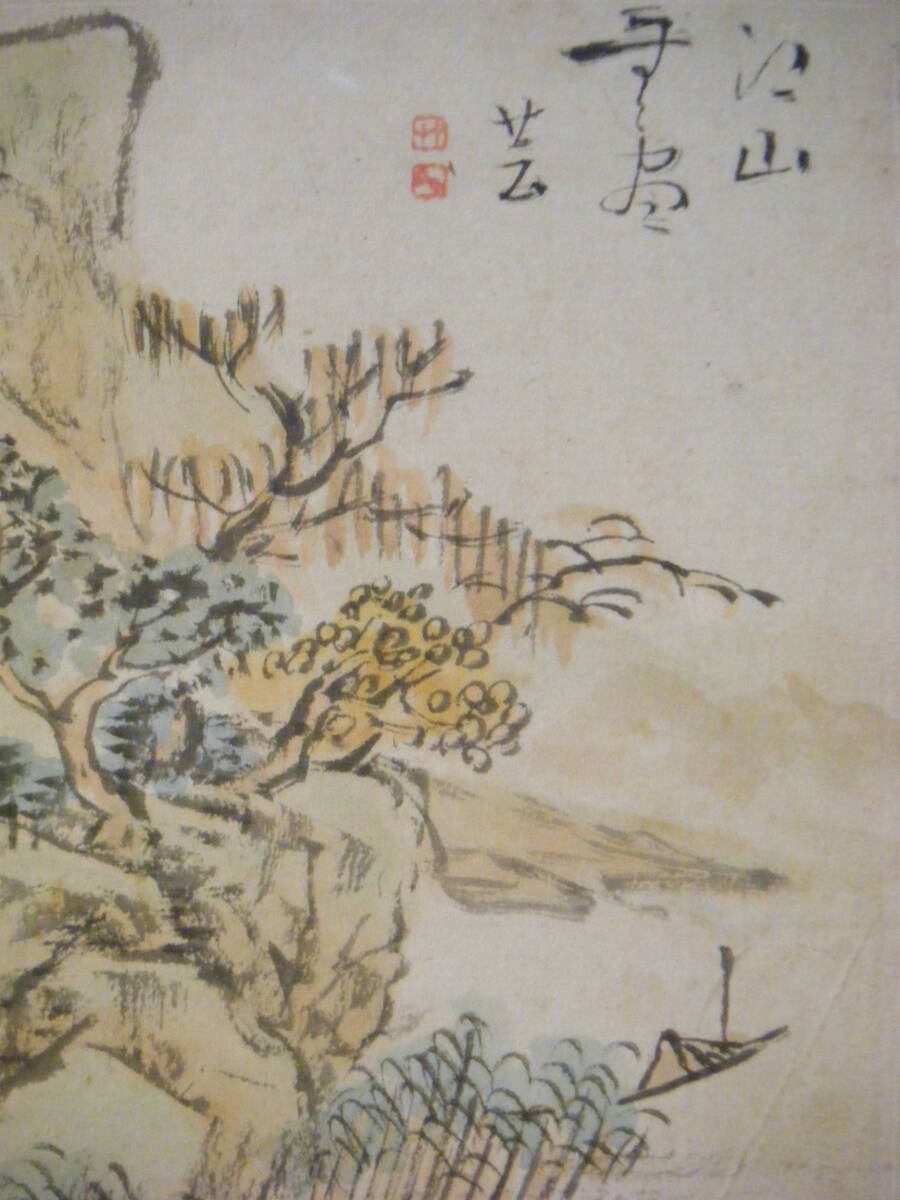 江山
無盡
芸